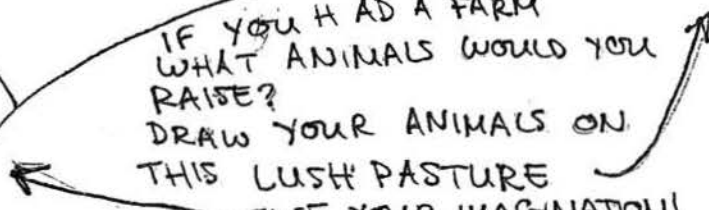 IF YOU HAD A FARM
WHAT ANIMALS WOULD YOU
RAISE?
DRAW YOUR ANIMALS ON
THIS LUSH PASTURE
YOUR IMAGINATION!